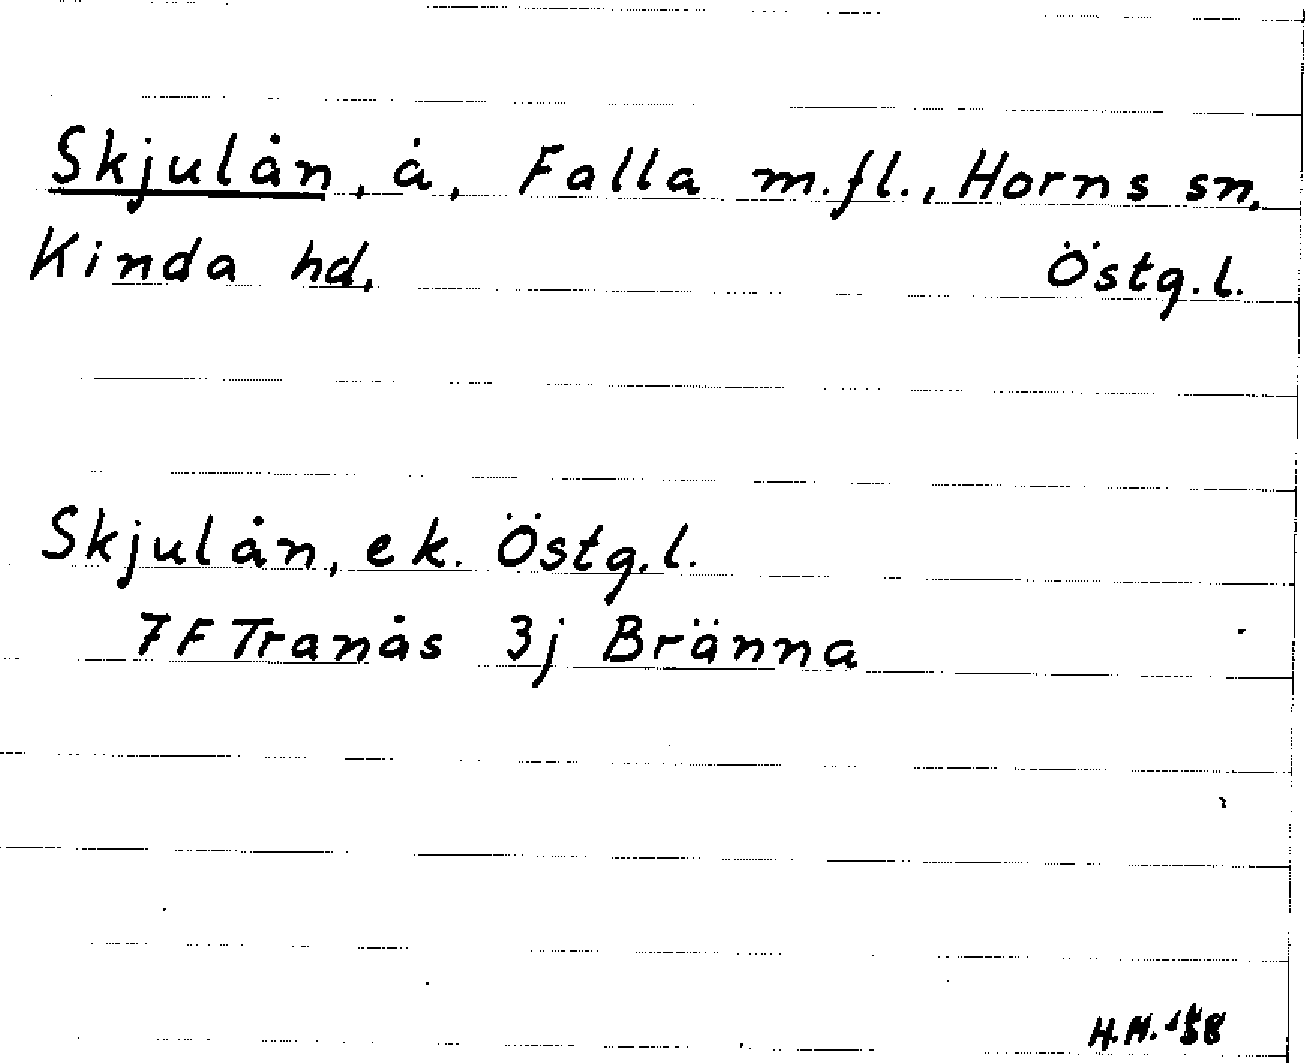 Skjulån, å, Falla m.fl., Horns sn.
Kinda hd. Östg.l.
Skjulån, ek. Östg.l.
7F Tranås 3j Bränna
H.M.